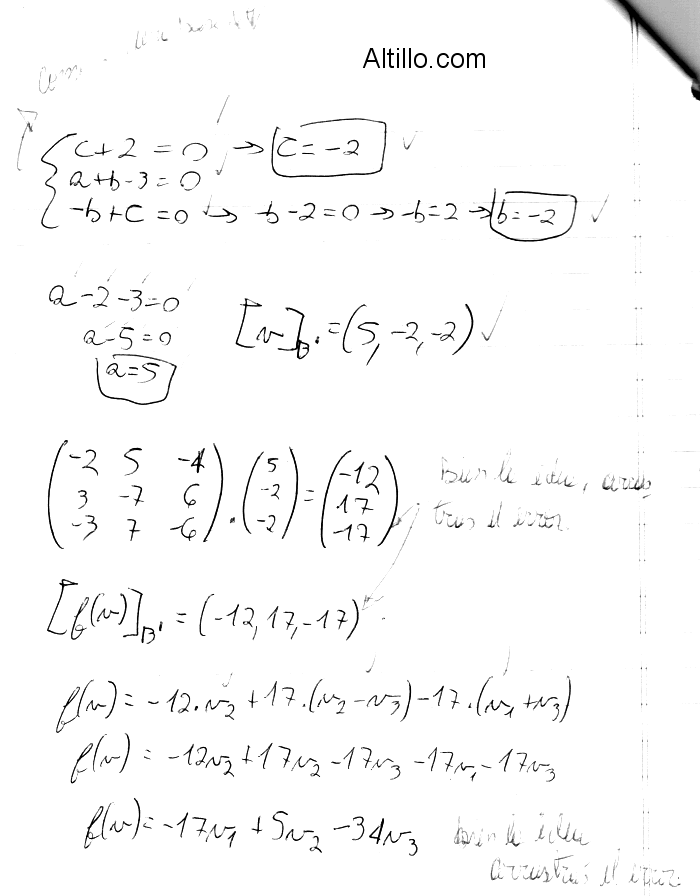 Altillo.com
{ c + 2 = 0 → c = -2 ✓
a + b - 3 = 0
-b + c = 0 → -b - 2 = 0 → -b = 2 → b = -2 ✓
a - 2 - 3 = 0
a - 5 = 0
a = 5
[v]B' = (5, -2, -2) ✓
(-2 5 -4) (5) (-12)
(3 -7 6) . (-2) = (17)
(-3 7 -6) (-2) (-17)
Bien la idea, arras
trás el error.
[f(v)]B' = (-12, 17, -17)
f(v) = -12.v2 + 17.(v2 - v3) - 17.(v1 + v3)
f(v) = -12v2 + 17v2 - 17v3 - 17v1 - 17v3
f(v) = -17v1 + 5v2 - 34v3
bien la idea
arrastrás el error.